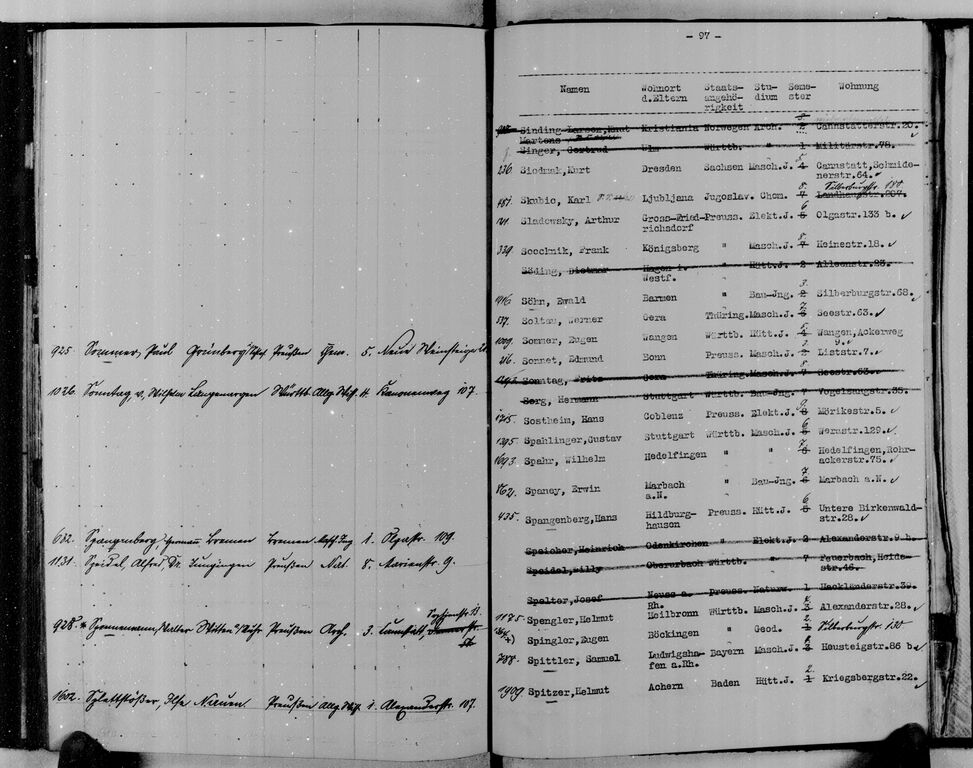 925. Sommer, Paul Grünberg/Schles. Preußen Chem. 5. Neue Weinsteige
1026. Sonntag, v, Wilhelm Langenargen Württb. Allg. Wiss. 4. Kanonenweg 107.
632. Spangenberg, Hermann Bremen Bremen 1. Olgastr. 109.
1131. Speidel Alfred, Dr. Jungingen Preußen Nat. 8. Marienstr. 9.
928. Spennemann, Walter Witten/Ruhr Preußen Arch. 3. Cannstatt
1602. Splettstößer, Ilse Nauen Preußen Allg. Wiss. 1. Alexanderstr. 107.
- 97 -
Namen Wohnort d.Eltern Staats-angehö-rigkeit Stu-dium Seme-ster Wohnung
Sinding Larsen, Knut Kristiania Norwegen Arch. 2 Cannstatterstr.20.
Martens
Singer, Gertrud Ulm Württb. " 1 Militärstr.78.
236. Siodmak, Kurt Dresden Sachsen Masch.J. 5 4 Cannstatt, Schmide-
nerstr.64.
Silberburgstr. 180
487. Skubic, Karl Ljubljana Jugoslav. Chem. 8. 7 Landhausstr.207.
Sladowsky, Arthur Gross-Fried-richsdorf Preuss. Elekt.J. 6 5 Olgastr.133 b.
339. Soecknik, Frank Königsberg " Masch.J. 8. 7 Heinestr.18.
Söding, Dietmar Hagen i. Westf. " Hütt.J. 2 Alleenstr.23.
916 Söhn, Ewald Barmen " Bau-Jng. 3. 2 Silberburgstr.68.
537. Soltau, Werner Gera Thüring. Masch.J. 7 6 Seestr.63.
1009. Sommer, Eugen Wangen Württb. Hütt.J. 5 4 Wangen, Ackerweg
9.
Sonnet, Edmund Bonn Preuss. Masch.J. 3 2 Liststr.7.
Sonntag, Fritz Gera Thüring. Masch.J. 8 7 Seestr.63.
Sorg, Hermann Stuttgart Württb. Bau-Jng. 7 Vogelsangstr.35.
1215 Sostheim, Hans Coblenz Preuss. Elekt.J. 9 8 Mörikestr.5.
1395 Spahlinger, Gustav Stuttgart Württb. Masch.J. 6 5 Werastr.129.
1693 Spahr, Wilhelm Hedelfingen " " 7 6 Hedelfingen, Rohr-
ackerstr.75.
862. Spaney, Erwin Marbach a.N. " Bau-Jng. 7. 6 Marbach a.N.
435. Spangenberg, Hans Hildburg-hausen Preuss. Hütt.J. 6 5 Untere Birkenwald-
str.28.
Speicher, Heinrich Odenkirchen " Elekt.J. 2 Alexanderstr.9 b.
Speidel, Willy Oberurbach Württb. " 7 Feuerbach, Heide-
str.46.
Spelter, Josef Neuss a. Rh. Preuss. Naturw. 1 Hackländerstr.39.
1175 Spengler, Helmut Heilbronn Württb. Masch.J. 3 Alexanderstr.28.
Spingler, Eugen Böckingen " Geod. 2 1 Silberburgstr. 130
788. Spittler, Samuel Ludwigsha-fen a.Rh. Bayern Masch.J. 3 Neusteigstr.86 b
1909 Spitzer, Helmut Achern Baden Hütt.J. 2. 1 Kriegsbergstr.22.